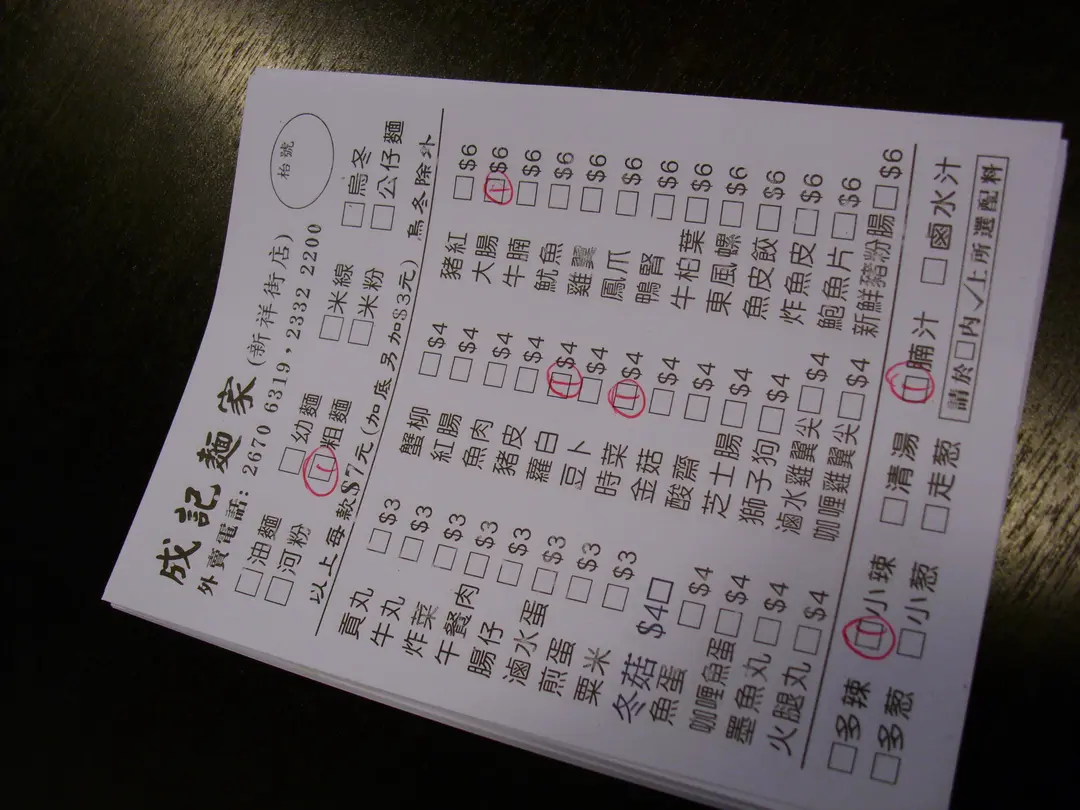 成記麵家 (新祥街店) 枱號
外賣電話: 2670 6319，2332 2200
□油麵 □幼麵 □米線 □烏冬
□河粉 □粗麵 □米粉 □公仔麵
以上每款$7元(加底另加$3元) 烏冬除外
貢丸 □$3 蟹柳 □$4 豬紅 □$6
牛丸 □$3 紅腸 □$4 大腸 □$6
炸菜 □$3 魚肉 □$4 牛腩 □$6
午餐肉 □$3 豬皮 □$4 魷魚 □$6
腸仔 □$3 蘿白 □$4 雞翼 □$6
滷水蛋 □$3 豆卜 □$4 鳳爪 □$6
煎蛋 □$3 時菜 □$4 鴨腎 □$6
粟米 □$3 金菇 □$4 牛柏葉 □$6
冬菇 $4□ 酸齋 □$4 東風螺 □$6
魚蛋 □$4 芝士腸 □$4 魚皮餃 □$6
咖喱魚蛋 □$4 獅子狗 □$4 炸魚皮 □$6
墨魚丸 □$4 滷水雞翼尖 □$4 鮑魚片 □$6
火腿丸 □$4 咖喱雞翼尖 □$4 新鮮豬粉腸 □$6
□多辣 □小辣 □清湯 □腩汁 □鹵水汁
□多葱 □小葱 □走葱 請於□內✓上所選配料